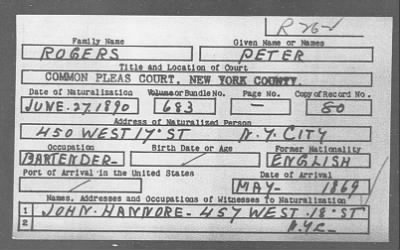 R 26-1
Family Name Given Name or Names
ROGERS PETER
Title and Location of Court
COMMON PLEAS COURT, NEW YORK COUNTY.
Date of Naturalization Volume or Bundle No. Page No. Copy of Record No.
JUNE.27,1890 683 — 80
Address of Naturalized Person
450 WEST 17 ST N.Y. CITY
Occupation Birth Date or Age Former Nationality
BARTENDER- ENGLISH
Port of Arrival in the United States Date of Arrival
MAY- 1869
Names, Addresses and Occupations of Witnesses To Naturalization
1 JOHN. HANNORE- 457 WEST. 18 ST
2 N.Y.C-